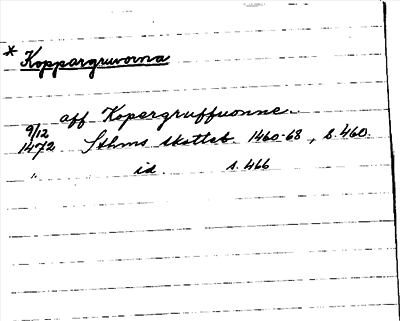 * Koppargruvorna
aff Kopargruffuonne.
9/12
1472 Sthms skatteb. 1460-68, s. 460.
" id. s. 466